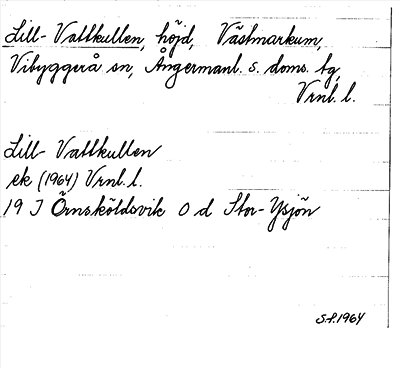 Lill-Vattkullen, höjd, Västmarkum,
Vibyggerå sn, Ångermanl. s. doms. tg,
Vrnl. l.
Lill-Vattkullen
ek (1964) Vrnl. l.
19 J Örnsköldsvik 0 d Stor-Ysjön
S.F. 1964